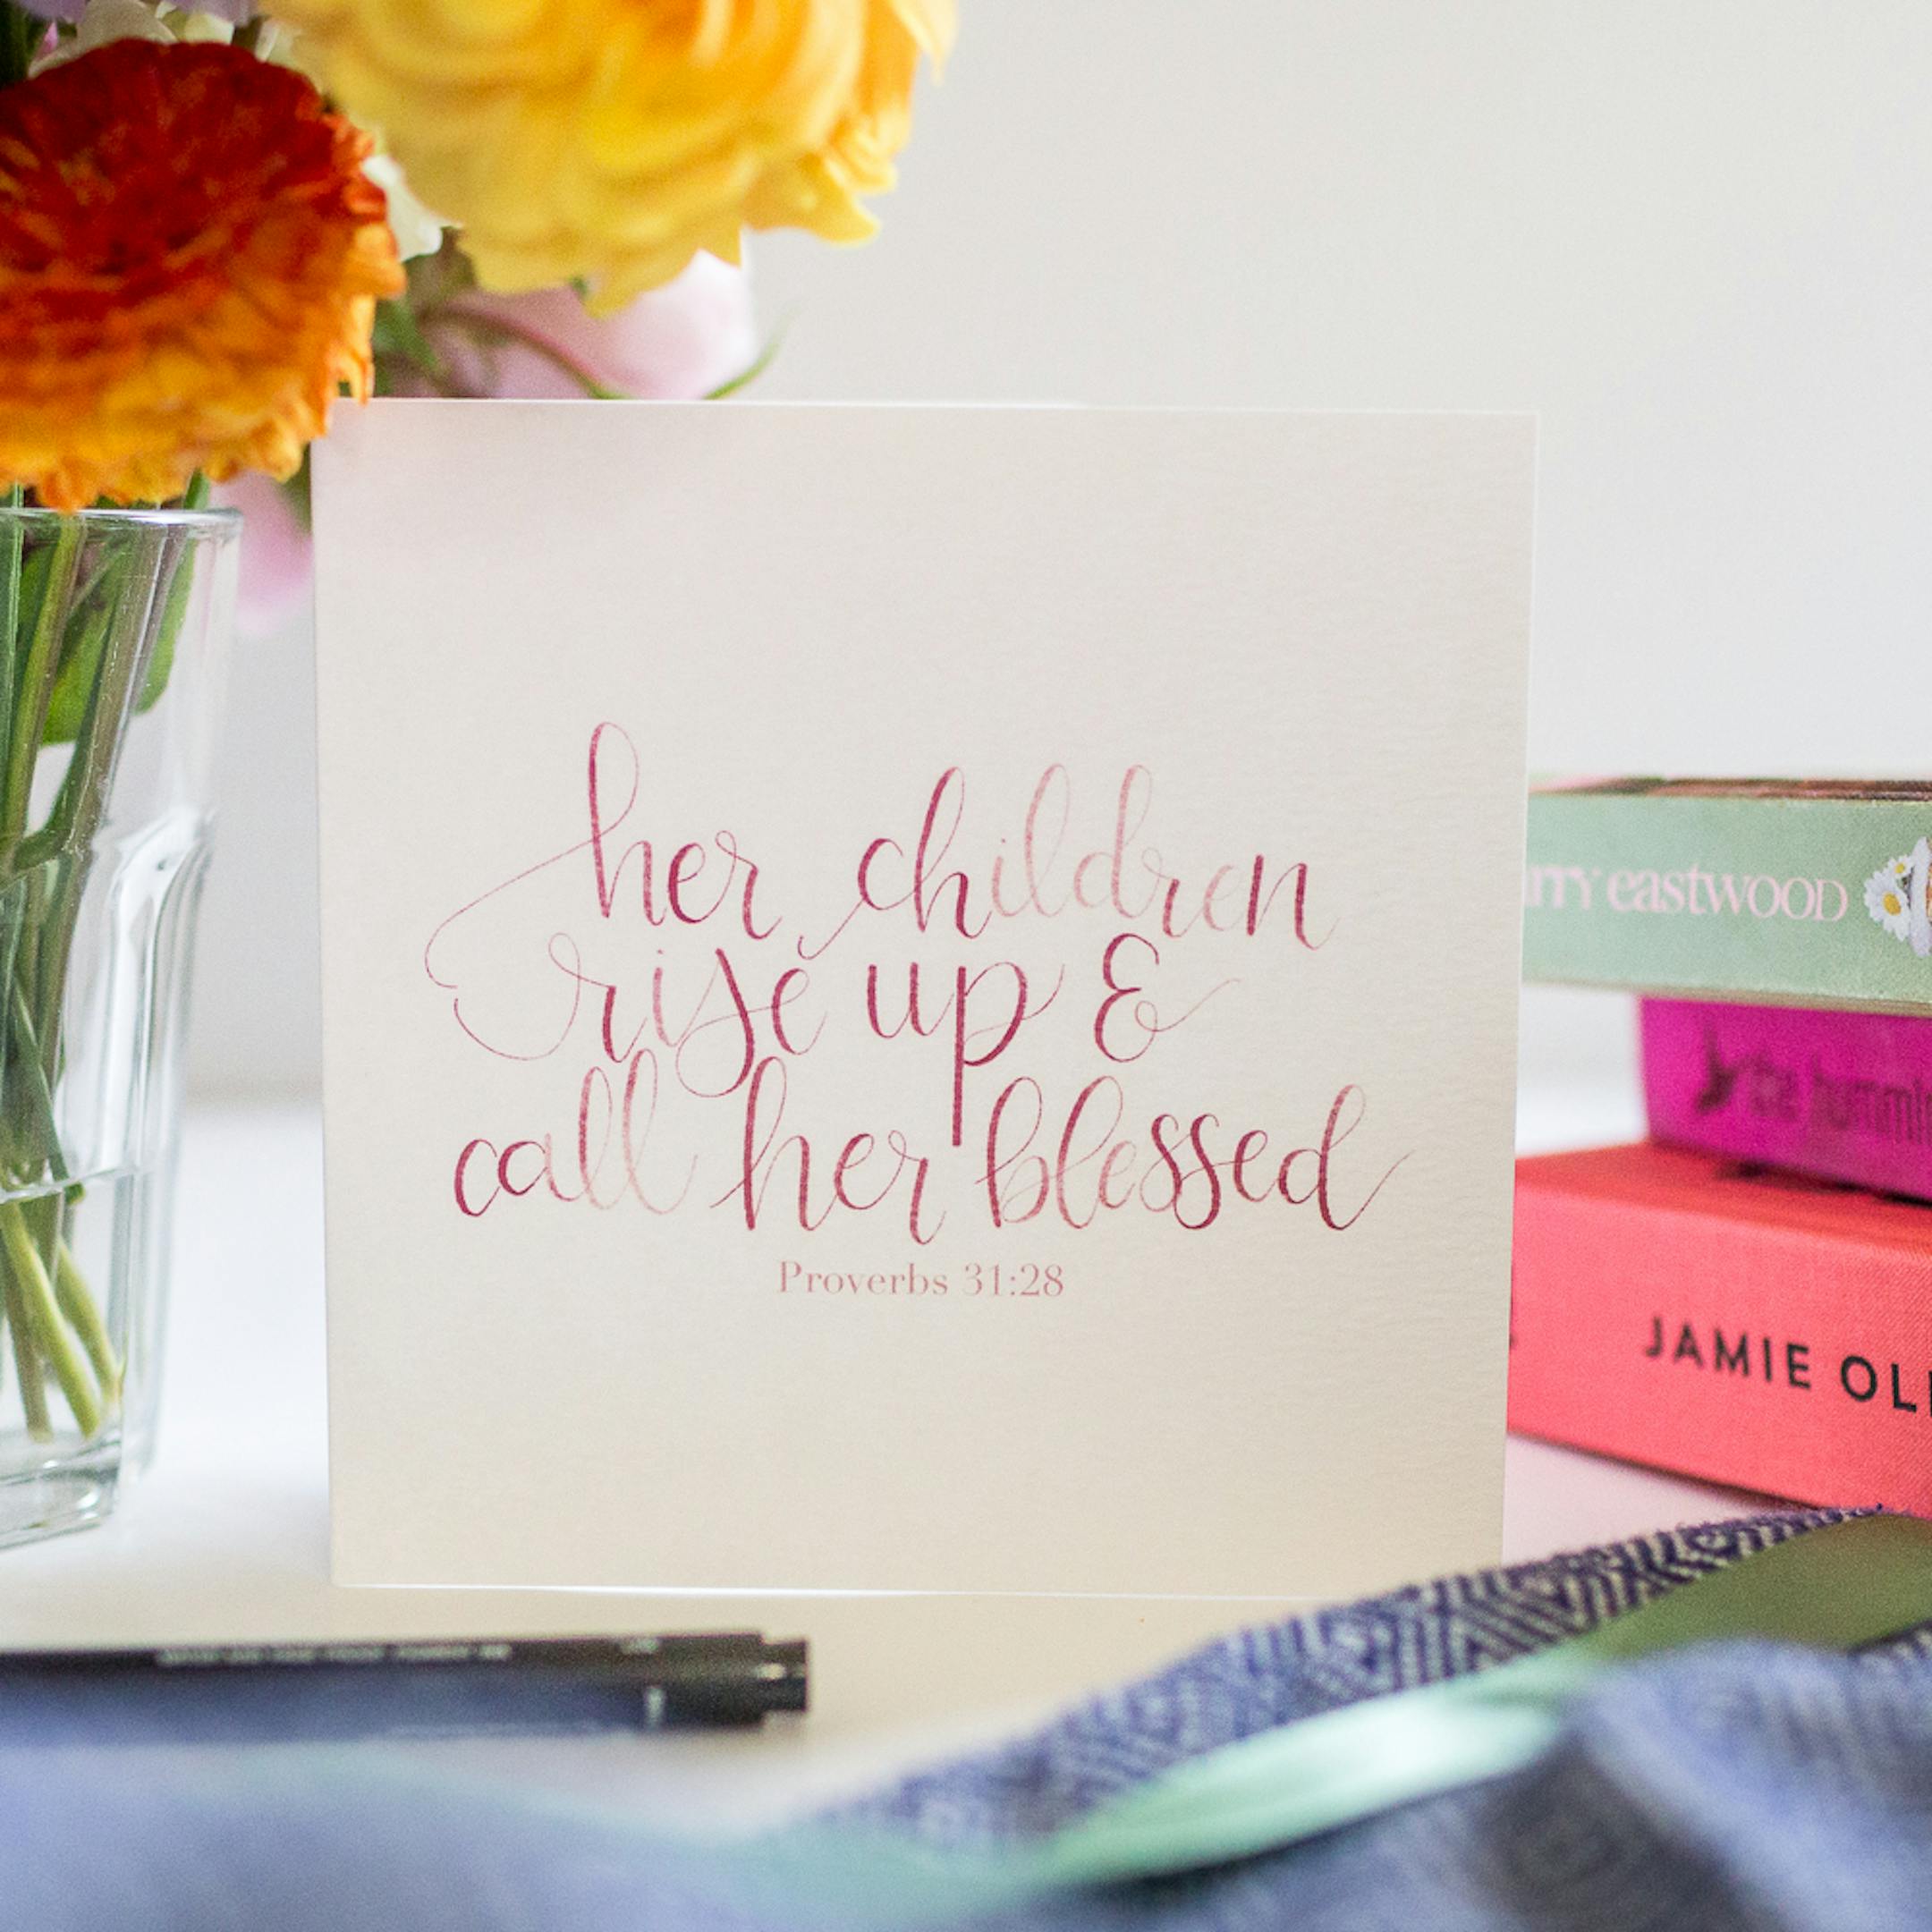 her children
rise up &
call her blessed
Proverbs 31:28
eastwood
the
JAMIE